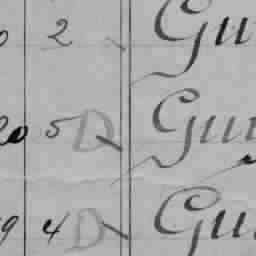 2 Gu
20 5 D Gu
9 4 D Gu